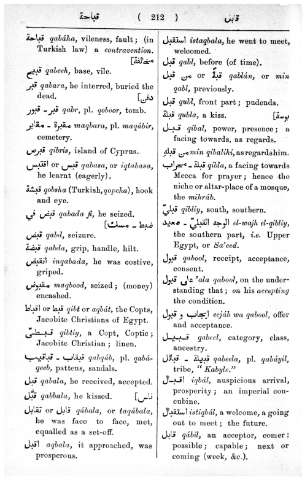 قباحة ( 212 ) قابل
قباحة qabâha, vileness, fault; (in
Turkish law) a contravention.
[مخالفة]
قبيح qabeeh, base, vile.
قبر qabara, he interred, buried the
dead. [دفن]
قبر - قبور qabr, pl. qoboor, tomb.
مقبرة - مقابر maqbara, pl. maqâbir,
cemetery.
قبرص qibris, island of Cyprus.
قبس or اقتبس qabasa, or iqtabasa,
he learnt (eagerly).
قبشة qobsha (Turkish, qopcha), hook
and eye.
قبض في qabada fi, he seized.
[ضبط - مسك]
قبض qabd, seizure.
قبضة qabda, grip, handle, hilt.
انقبض inqabada, he was costive,
griped.
مقبوض maqbood, seized; (money)
encashed.
قبط or اقباط qibt or aqbât, the Copts,
Jacobite Christians of Egypt.
قبطي qibtiy, a Copt, Coptic;
Jacobite Christian; linen.
قبقاب - قباقيب qabqâb, pl. qabâ-
qeeb, pattens, sandals.
قبل qabala, he received, accepted.
قبّل qabbala, he kissed. [باس]
قابل or تقابل qâbala, or taqâbala,
he was face to face, met,
equalled as a set-off.
اقبل aqbala, it approached, was
prosperous.
استقبل istaqbala, he went to meet,
welcomed.
قبل qabl, before (of time).
قبلاً or من قبل qablân, or min
qabl, previously.
قبل qubl, front part; pudenda.
قبلة qubla, a kiss.
قبل qibal, power, presence; a
facing towards, as regards.
من قبلك min qibalikí, as regards him.
قبلة - محراب qibla, a facing towards
Mecca for prayer; hence the
niche or altar-place of a mosque,
the mihrâb.
قبلي qibliy, south, southern.
الوجه القبلي - صعيد el-wajh el-qibliy,
the southern part, i.e. Upper
Egypt, or Sa'eed.
قبول qabool, receipt, acceptance,
consent.
على قبول 'ala qabool, on the under-
standing that; on his accepting
the condition.
ايجاب و قبول eejâb wa qabool, offer
and acceptance.
قبيل qabeel, category, class,
ancestry.
قبيلة - قبائل qabeela, pl. qabâyil,
tribe, "Kabyle."
اقبال iqbâl, auspicious arrival,
prosperity; an imperial con-
cubine.
استقبال istiqbâl, a welcome, a going
out to meet; the future.
قابل qâbil, an acceptor, comer:
possible; capable; next or
coming (week, &c.).